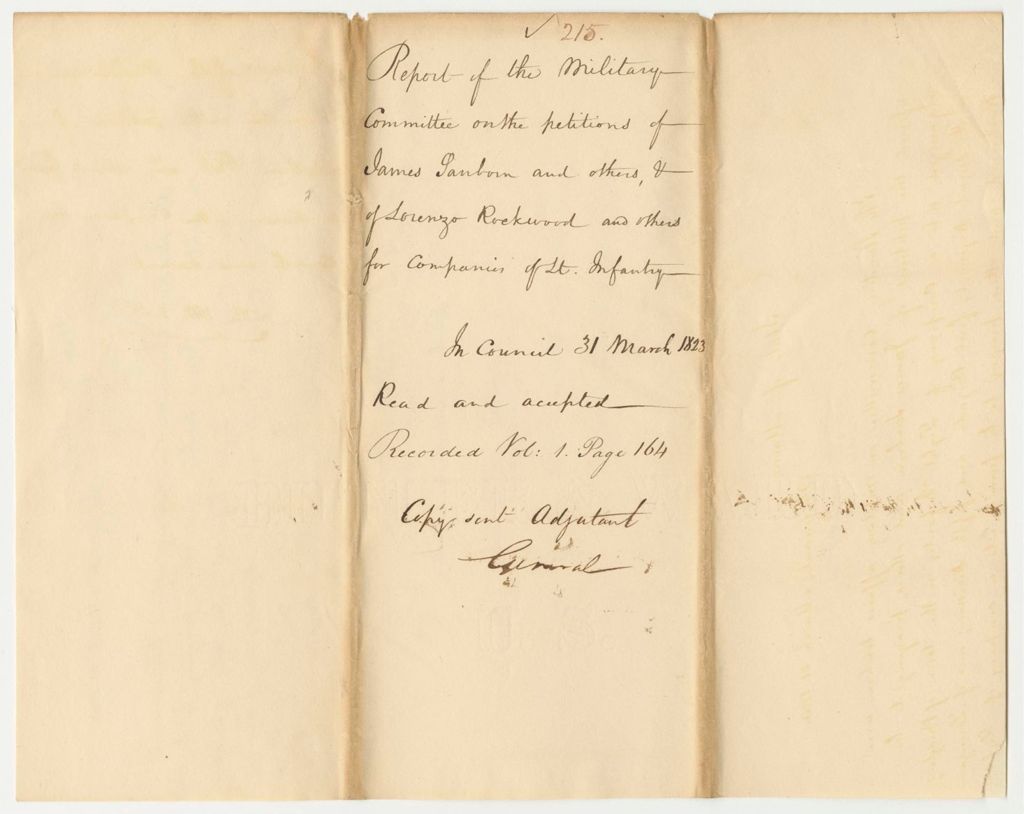 ✓ 215.
Report of the Military
Committee on the petitions of
James Sanborn and others, &
of Lorenzo Rockwood and others
for Companies of Lt. Infantry
In Council 31 March 1823
Read and accepted
Recorded Vol: 1. Page 164
Copy sent Adjutant
General